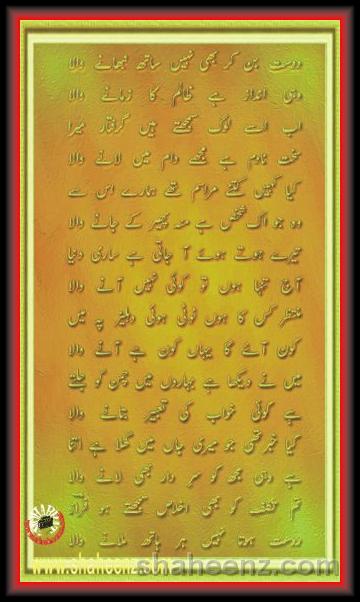 دوست بن کر بھی نہیں ساتھ نبھانے والا
وہی انداز ہے ظالم کا زمانے والا
اب اسے لوگ سمجھتے ہیں گرفتار میرا
سخت نادم ہے مجھے دام میں لانے والا
کیا کہیں کتنے مراسم تھے ہمارے اس سے
وہ جو اک شخص ہے منہ پھیر کے جانے والا
تیرے ہوتے ہوئے آ جاتی ہے ساری دنیا
آج تنہا ہوں تو کوئی نہیں آنے والا
منتظر کس کا ہوں ٹوٹی ہوئی دہلیز پہ میں
کون آئے گا یہاں کون ہے آنے والا
میں نے دیکھا ہے بہاروں میں چمن کو جلتے
ہے کوئی خواب کی تعبیر بتانے والا
کیا خبر تھی جو میری جاں میں گھلا ہے اتنا
ہے وہی مجھ کو سر دار بھی لانے والا
تم تکلف کو بھی اخلاص سمجھتے ہو فراز
دوست ہوتا نہیں ہر ہاتھ ملانے والا
www.shaheenz.com
shaheenz.com